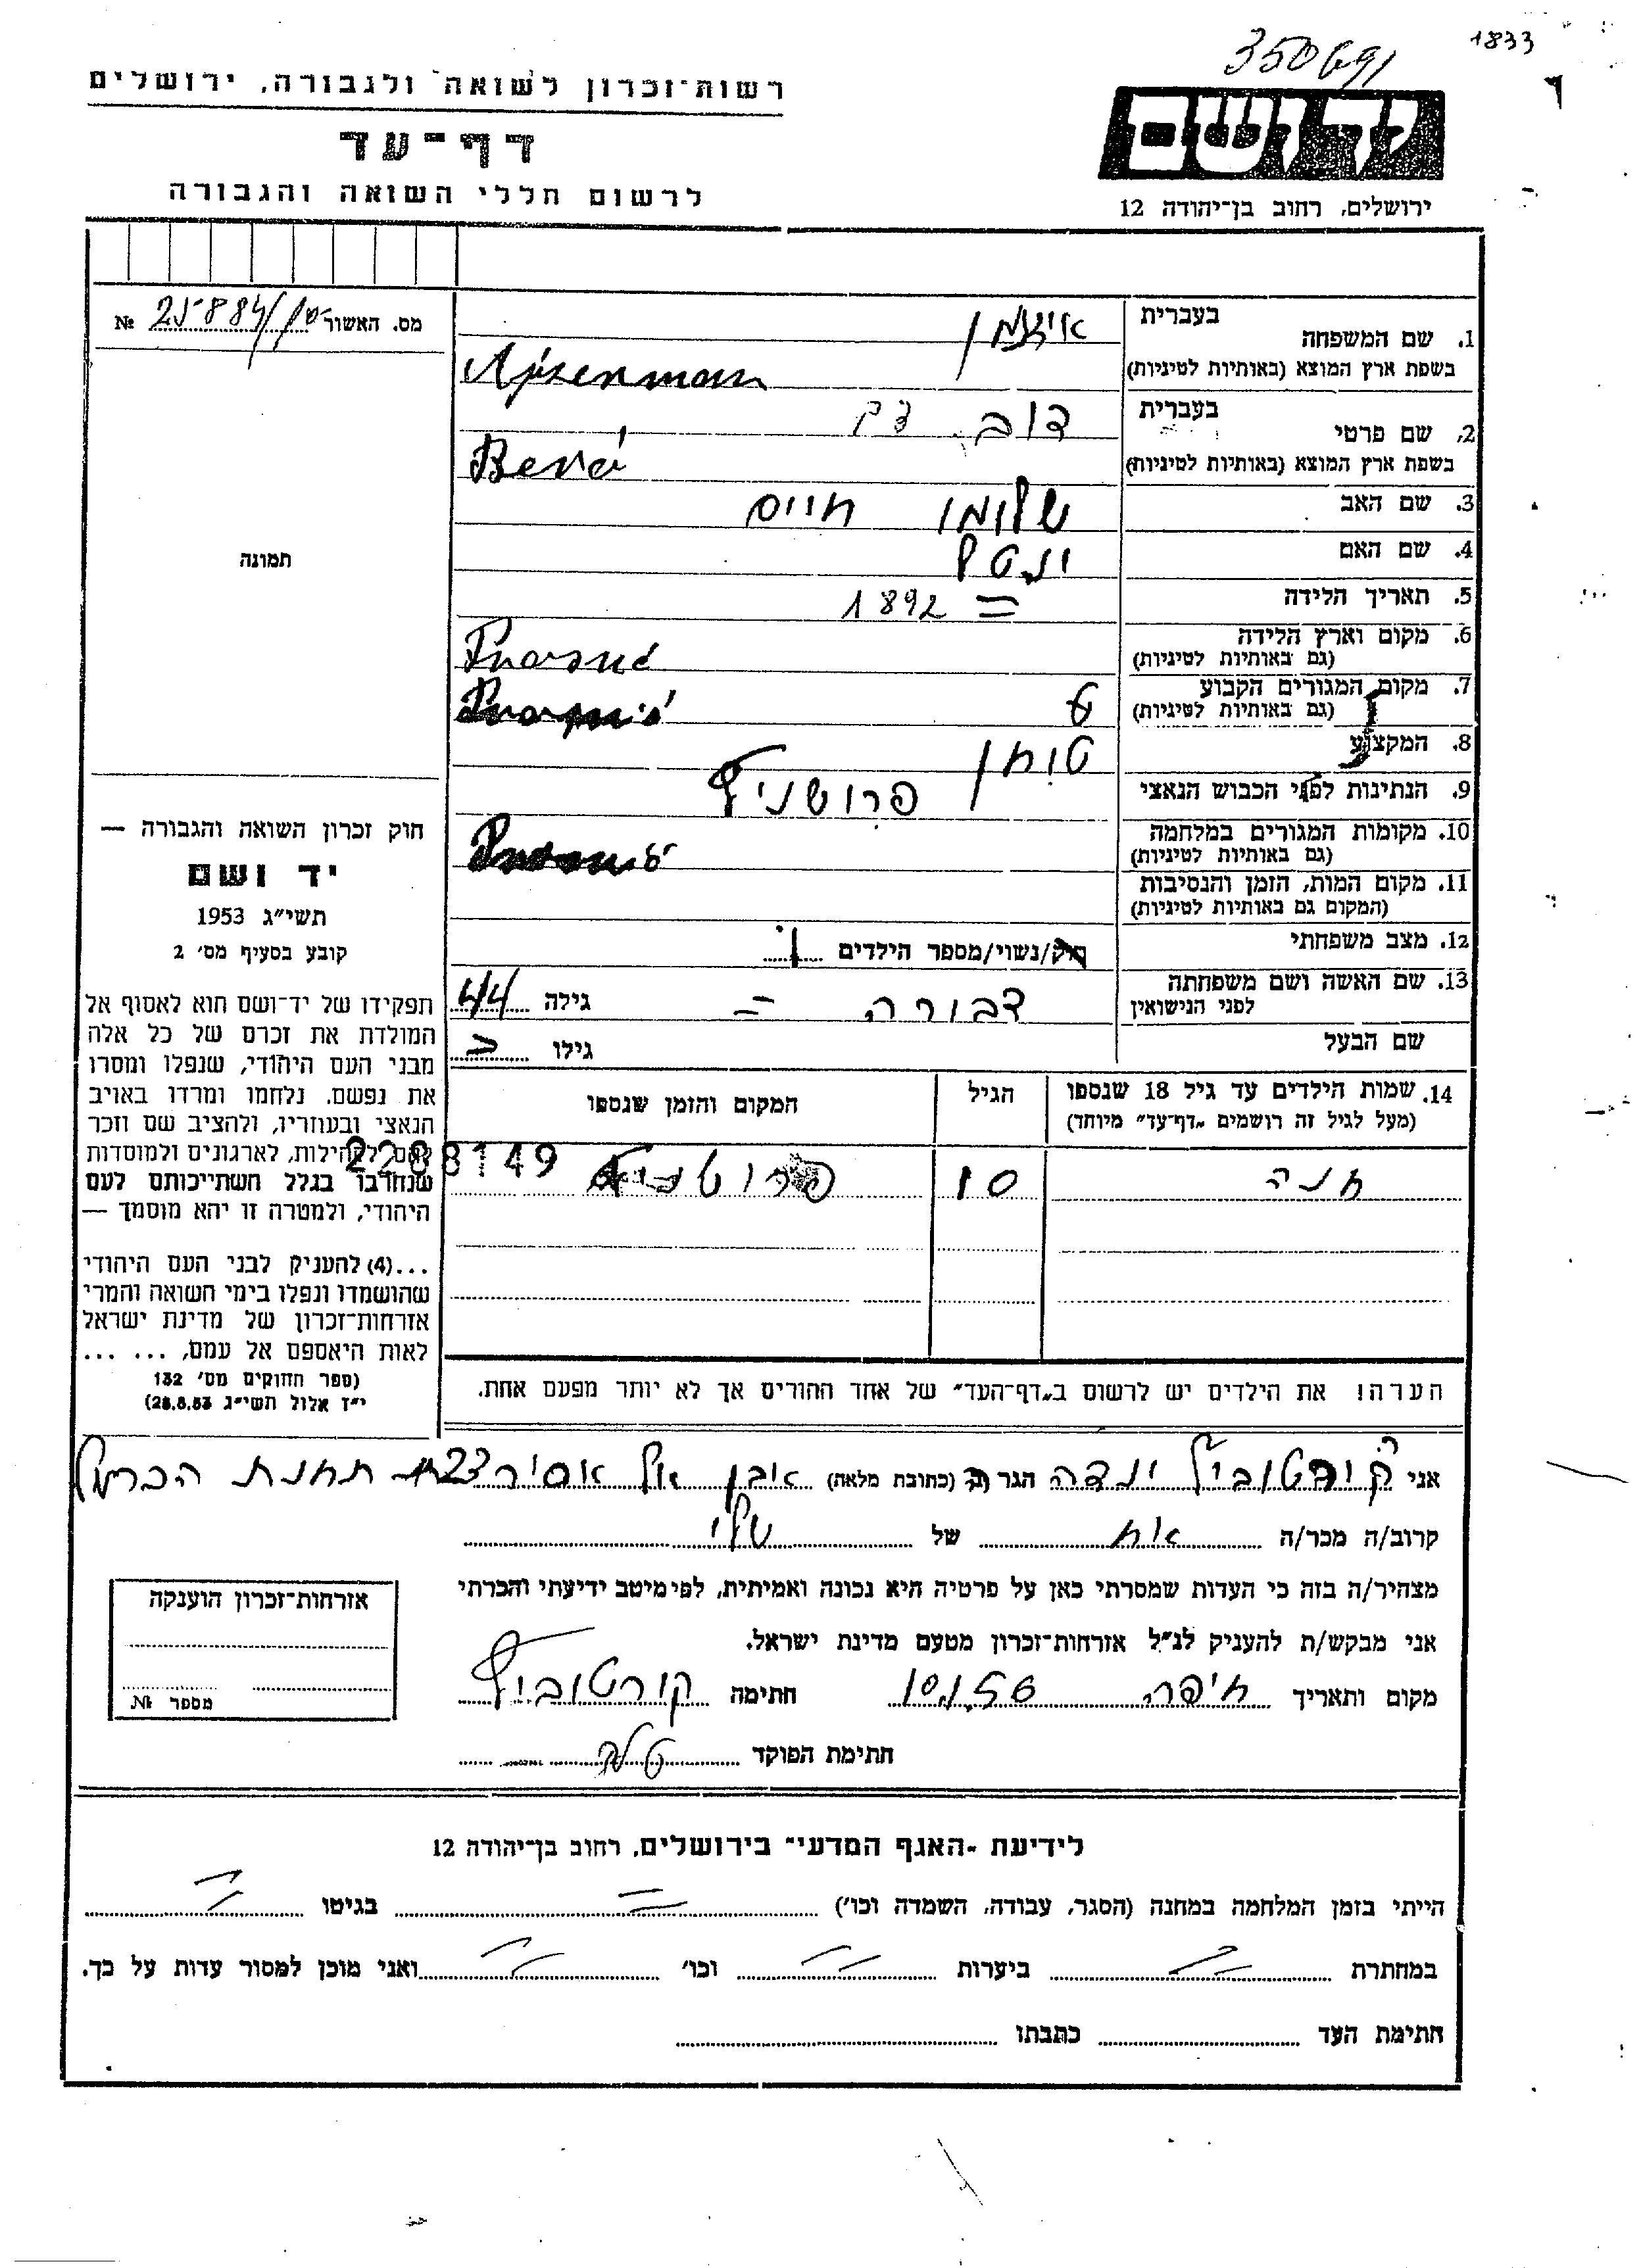 1833
350691
רשות־זכרון לשואה ולגבורה, ירושלים
דף־עד
לרשום חללי השואה והגבורה
יד ושם
ירושלים, רחוב בן־יהודה 12
מס. האשור № 25884
1. שם המשפחה בעברית אייזנמן
בשפת ארץ המוצא (באותיות לטיניות) Ajzenman
2. שם פרטי בעברית דוב
בשפת ארץ המוצא (באותיות לטיניות)
3. שם האב שלומו חיים
4. שם האם
5. תאריך הלידה = 1892
6. מקום וארץ הלידה
(גם באותיות לטיניות)
7. מקום המגורים הקבוע
(גם באותיות לטיניות)
8. המקצוע טוחן
9. הנתינות לפני הכבוש הנאצי
10. מקומות המגורים במלחמה
(גם באותיות לטיניות)
11. מקום המות, הזמן והנסיבות
(המקום גם באותיות לטיניות)
12. מצב משפחתי רוק/נשוי/מספר הילדים 1
13. שם האשה ושם משפחתה
לפני הנישואין דבורה = גילה 44
שם הבעל גילו
14. שמות הילדים עד גיל 18 שנספו
(מעל לגיל זה רושמים „דף־עד" מיוחד)
הגיל
המקום והזמן שנספו
חנה 10
2288149
תמונה
חוק זכרון השואה והגבורה —
יד ושם
תשי״ג 1953
קובע בסעיף מס׳ 2
תפקידו של יד־ושם הוא לאסוף אל
המולדת את זכרם של כל אלה
מבני העם היהודי, שנפלו ומסרו
את נפשם, נלחמו ומרדו באויב
הנאצי ובעוזריו, ולהציב שם וזכר
להם, לקהילות, לארגונים ולמוסדות
שנחרבו בגלל השתייכותם לעם
היהודי, ולמטרה זו יהא מוסמך —
...(4) להעניק לבני העם היהודי
שהושמדו ונפלו בימי השואה והמרי
אזרחות־זכרון של מדינת ישראל
לאות היאספם אל עמם, ... ...
(ספר החוקים מס׳ 132
י״ז אלול תשי״ג 28.8.53)
הערה! את הילדים יש לרשום ב„דף־העד" של אחד ההורים אך לא יותר מפעם אחת.
אני קורטוביץ ינדה הגר ה (כתובת מלאה) אבן אל אסיר 23 תחנת הכרמל
קרוב/ה מכר/ה אח של שלי
מצהיר/ה בזה כי העדות שמסרתי כאן על פרטיה היא נכונה ואמיתית, לפי מיטב ידיעתי והכרתי
אני מבקש/ת להעניק לנ״ל אזרחות־זכרון מטעם מדינת ישראל.
מקום ותאריך חיפה 10.1.56 חתימה קורטוביץ
חתימת הפוקד
אזרחות־זכרון הוענקה
מספר №
לידיעת „האגף המדעי" בירושלים, רחוב בן־יהודה 12
הייתי בזמן המלחמה במחנה (הסגר, עבודה, השמדה וכו׳) בגיטו
במחתרת ביערות וכו׳ ואני מוכן למסור עדות על כך.
חתימת העד כתבתו